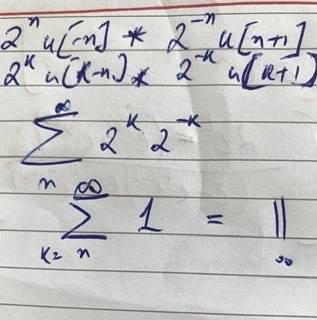 2^n u[-n] * 2^-n u[n+1]
2^k u[k-n] * 2^-k u[k+1]
∞
∑ 2^k 2^-k
n
∞
∑ 1 = ||
k= n ∞